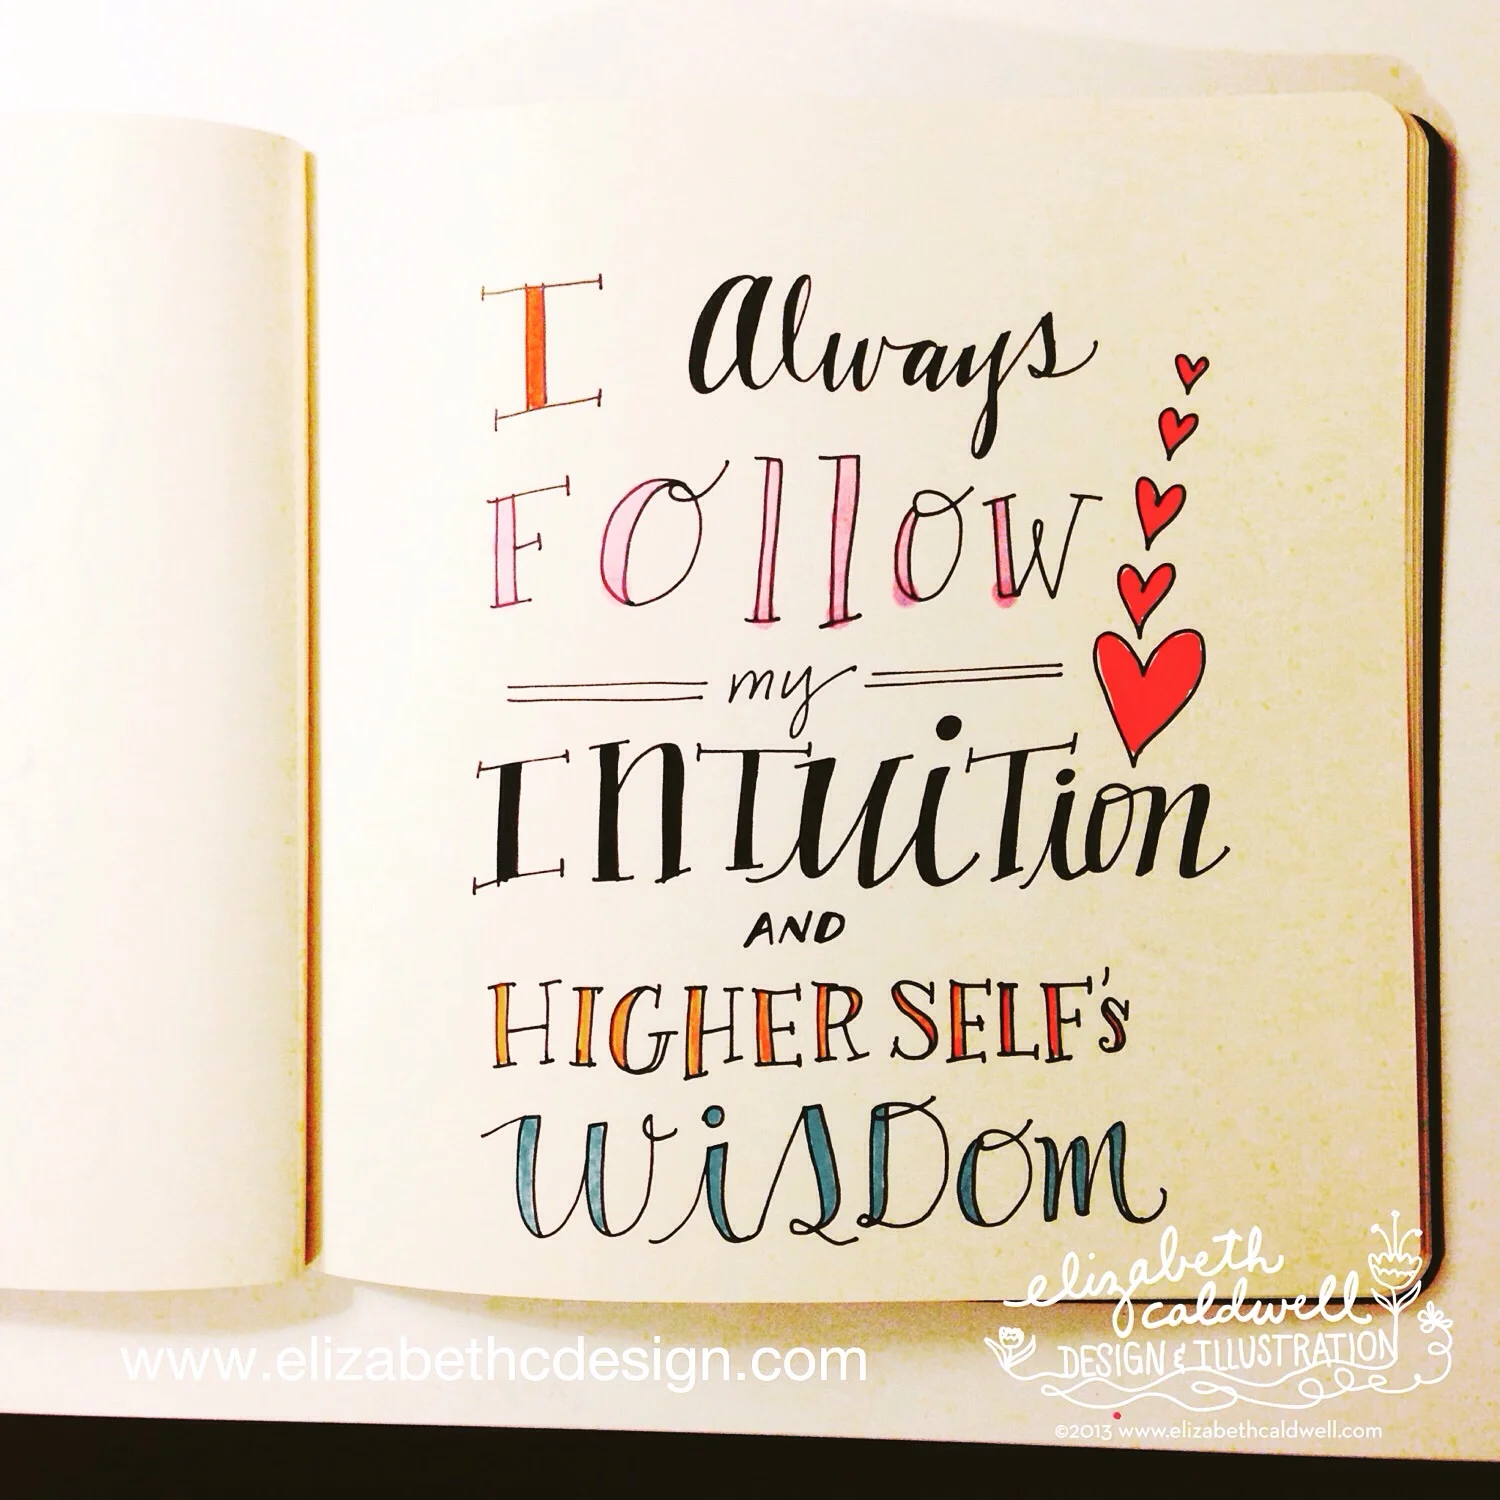 I Always
Follow
my
INTUITion
AND
HIGHER SELF's
WiSDom
elizabeth
caldwell
DESIGN & ILLUSTRATION
www.elizabethcdesign.com
©2013 www.elizabethcaldwell.com